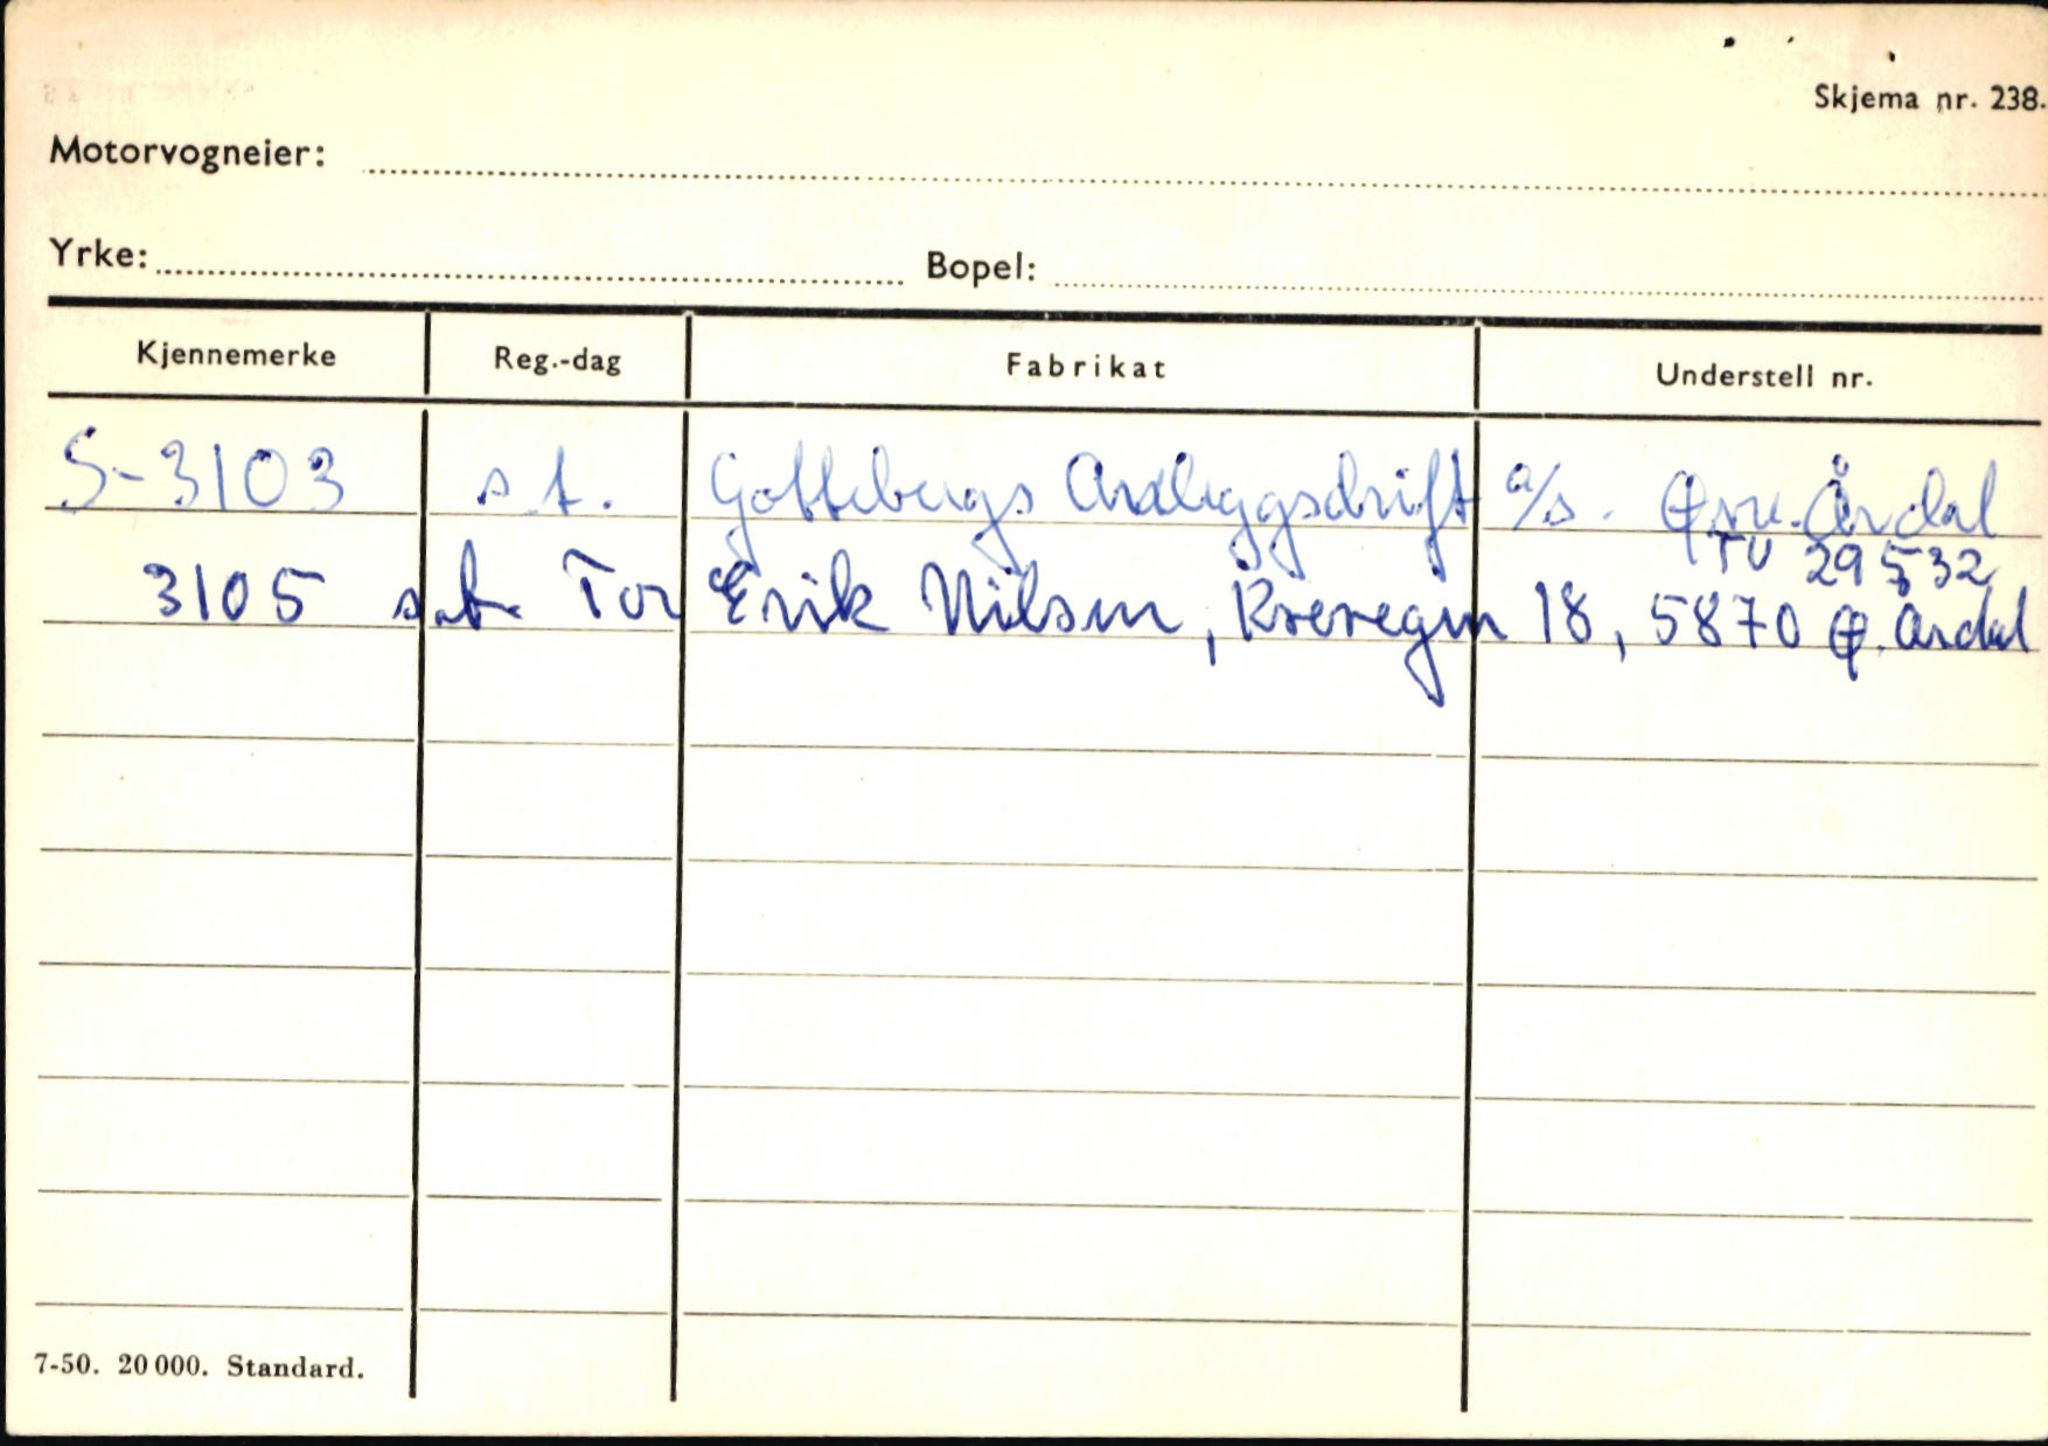 Skjema nr. 238.
Motorvogneier:
Yrke: Bopel:
Kjennemerke Reg.-dag Fabrikat Understell nr.
S-3103 s.t. Gottebergs Anleggsdrift a/s. Øvre. Årdal
TV 29532
3105 s.t. Tor Erik Nilsen, 18, 5870 Ø. Årdal
7-50. 20 000. Standard.